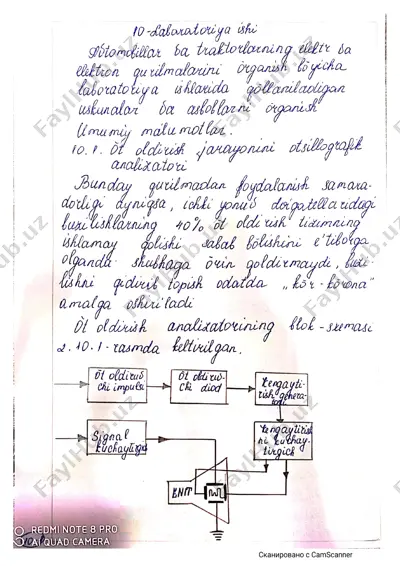 10-Labaratoriya ishi
Avtomobillar va traktorlarning elektr va
elektron qurilmalarini organish bo'yicha
laboratoriya ishlarida qo'llaniladigan
uskunalar va asboblarni organish
Umumiy malumotlar.
10.1. Ot oldirish jarayonini otsillografik
analizatori
Bunday qurilmadan foydalanish samara-
dorligi ayniqsa, ichki yonuv dvigatellaridagi
buzilishlarning 40% ot oldirish tizimning
ishlamay qolishi sabab bolishini e'tiborga
olganda shubhaga orin qoldirmaydi, buzi
lishni qidirib topish odatda „kor-korona"
amalga oshiriladi
Ot oldirish analizatorining blok-sxemasi
2.10.1-rasmda keltirilgan.
Ot oldiruv
chi impuls
Ot oldiruv-
chi diod
Kengayti-
rish genera-
tori
Signal
kuchaytirgich
Kengaytirish
ni kuchay-
tirgich
ENT
REDMI NOTE 8 PRO
AI QUAD CAMERA
Сканировано с CamScanner
FaylHub.uz